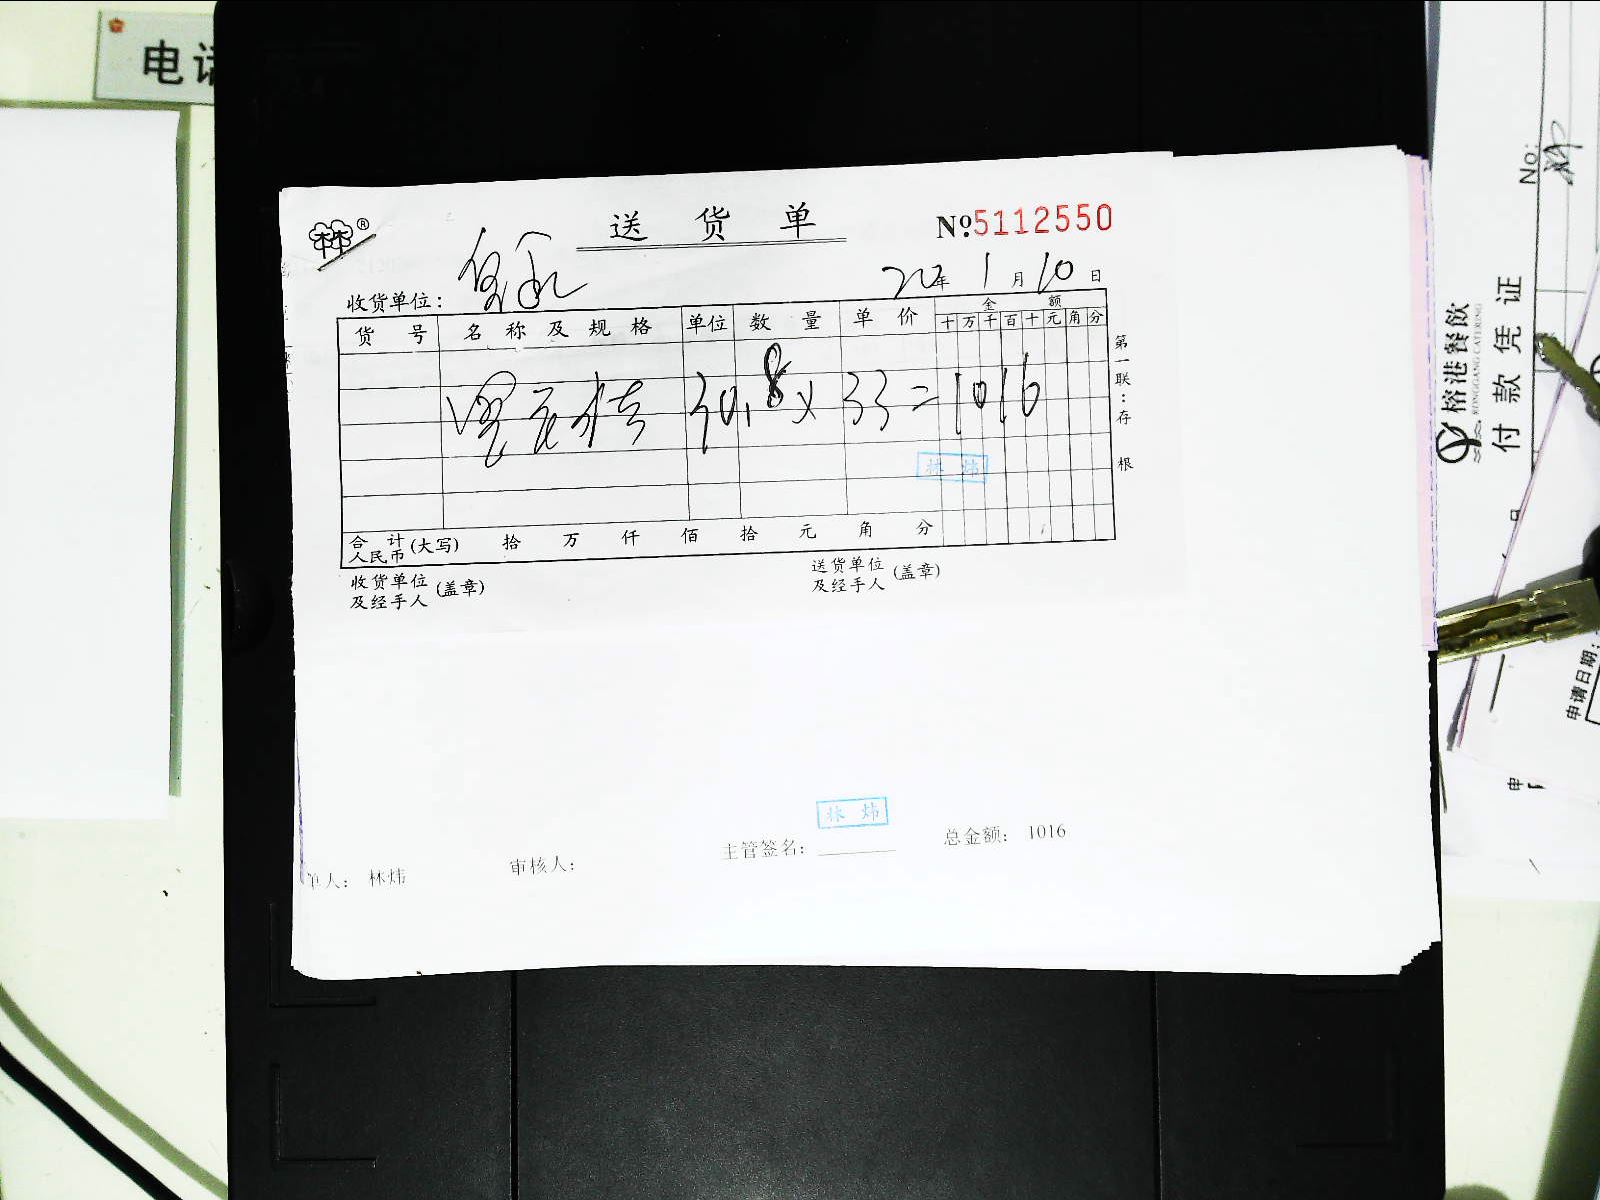 电话
送货单
№5112550
收货单位:
年 1 月 10 日
货号 名称及规格 单位 数量 单价 金额
十 万 千 百 十 元 角 分
30.8 × 33 = 1016
林炜
合计人民币(大写) 拾 万 仟 佰 拾 元 角 分
第一联:存根
收货单位及经手人(盖章)
送货单位及经手人(盖章)
林炜
单人: 林炜 审核人: 主管签名: 总金额: 1016
No:
榕港餐飲
RONGGANG CATERING
付款凭证
申请日期: